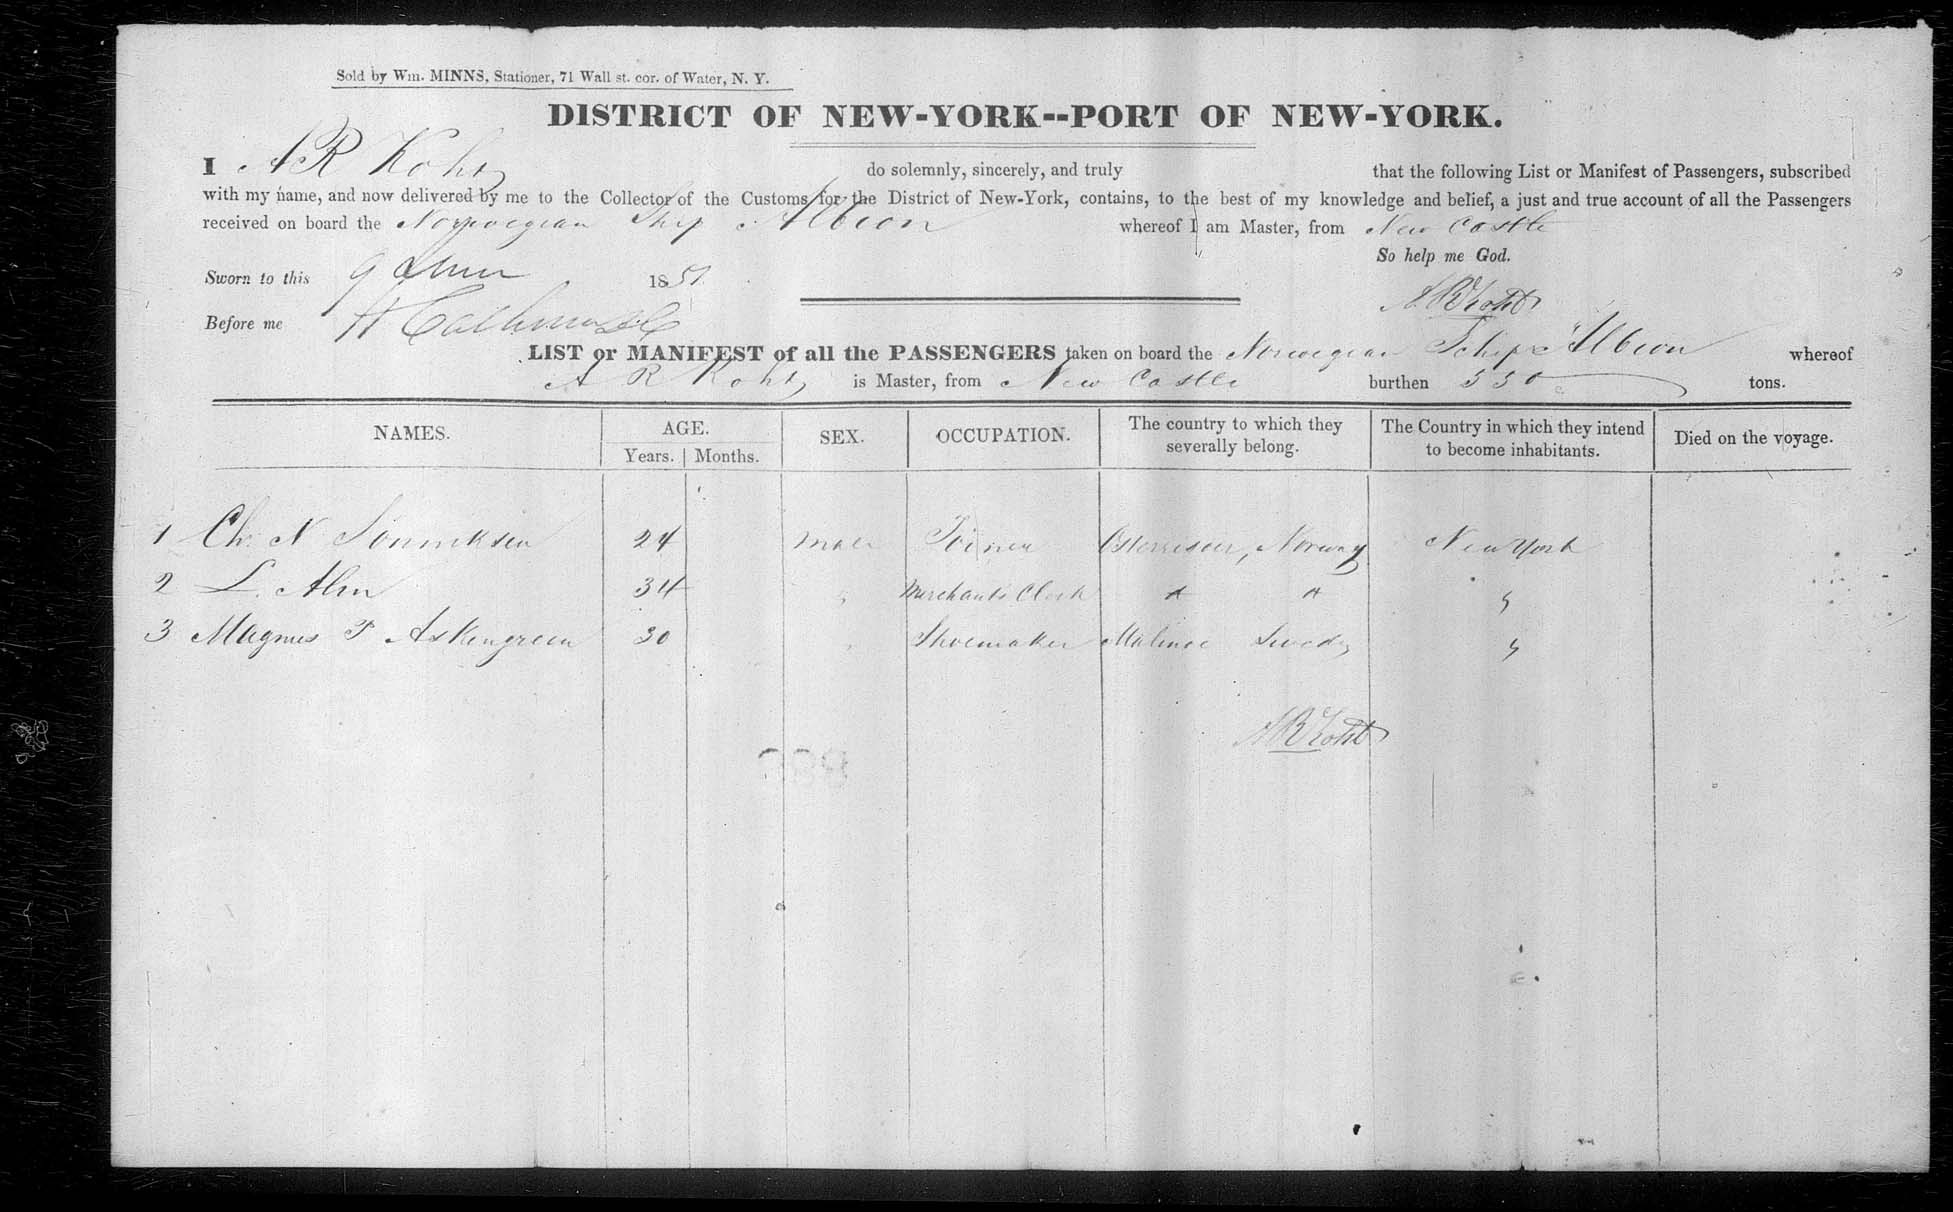 Sold by Wm. MINNS, Stationer, 71 Wall st. cor. of Water, N. Y.
DISTRICT OF NEW-YORK--PORT OF NEW-YORK.
I A R Koht do solemnly, sincerely, and truly that the following List or Manifest of Passengers, subscribed
with my name, and now delivered by me to the Collector of the Customs for the District of New-York, contains, to the best of my knowledge and belief, a just and true account of all the Passengers
received on board the Norwegian Ship Albion whereof I am Master, from New Castle
So help me God.
Sworn to this 9 1851
A R Koht
Before me
LIST or MANIFEST of all the PASSENGERS taken on board the Norwegian Schip Albion whereof
A R Koht is Master, from New Castle burthen 550 tons.
NAMES. AGE. Years. Months. SEX. OCCUPATION. The country to which they severally belong. The Country in which they intend to become inhabitants. Died on the voyage.
1 Ch. N 24 Male Joiner Norway New York
2 L. Alm 34 " Merchants Clerk " " "
3 Magnus Askengreen 30 " Shoemaker Malmoe "
A R Koht